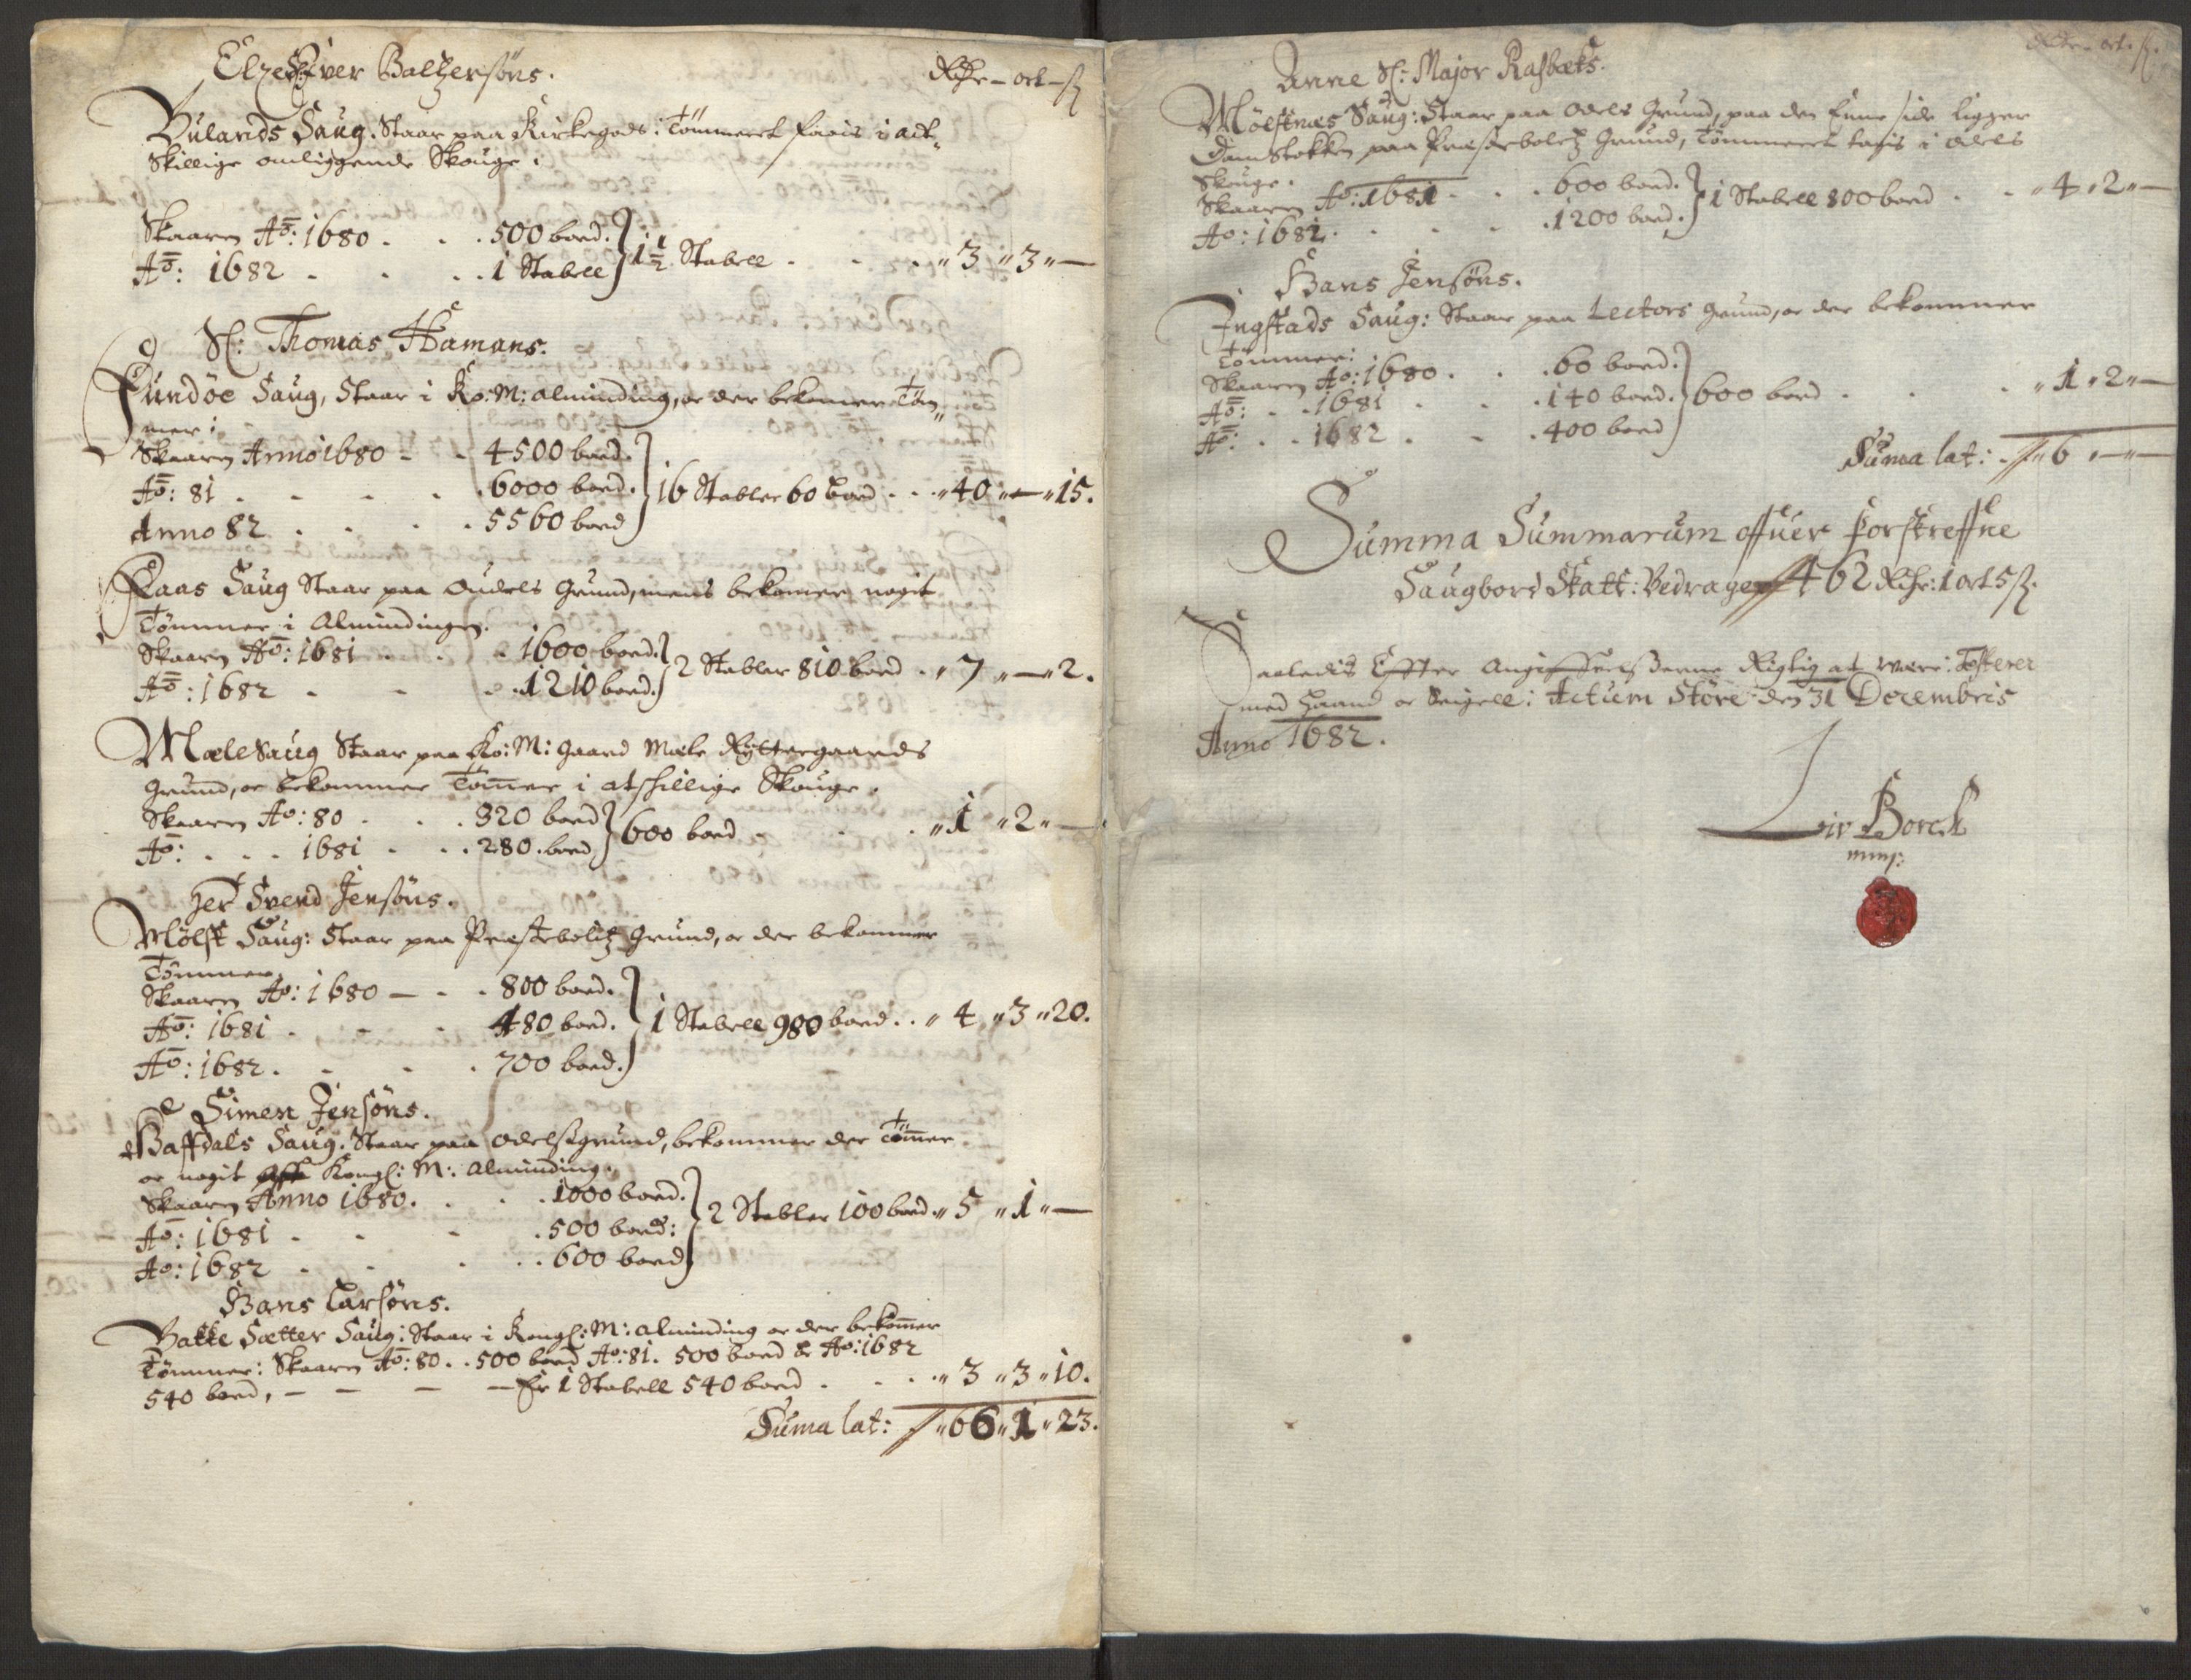 Elzes Ifver Baltzersøns.
Rdr – ort – ß
Bulands Saug. Staar paa Kirkegods: Tømmeret faais i adt„
Skillige omliggende Skouge.
Skaaren Aō: 1680 . . . 500 bord.
Aō: 1682 . . . 1 Stabell } 1½ Stabell . . . „ 3 „ 3 „ —
Sl: Thomas Hamans.
Fundøe Saug, Staar i Ko: M: alminding, oc der bekomer Tøm„
mer:
Skaaren Anno 1680 – . 4500 bord.
Aō: 81 . . . . 6000 bord. } 16 Stabler 60 bord . . „ 40 „ — „ 15.
Anno 82 . . . . 5560 bord
Faas Saug Staar paa Oudels Grund, mens bekomer nogit
Tømmer i Almindingen.
Skaaren Aō: 1681 . . . 1600 bord.
Aō: 1682 . . . 1210 bord. } 2 Stabler 810 bord . „ 7 „ — „ 2.
Mæle Saug Staar paa Ko: M: Gaard Mæle Ryttergaards
Grund, oc bekommer Tømer i atskillige Skouge.
Skaaren Ao: 80 . . . 320 bord
Aō: . . . 1681 . . . 280 bord } 600 bord . . . „ 1 „ 2 „ —
Her Svend Jensøns.
Mølst Saug: Staar paa Præstebolitz Grund, oc der bekommer
Tømmer.
Skaaren Ao: 1680 – . . 800 bord.
Aō: 1681 . . . 480 bord. } 1 Stabell 980 bord . . „ 4 „ 3 „ 20.
Aō: 1682 . . . . 700 bord.
Simen Jensøns.
Haffdals Saug. Staar paa Odelsgrund, bekommer der Tømer
oc nogit aff Kongl: M: Alminding.
Skaaren Anno 1680. . . . 1000 bord.
Aō: 1681 . . . . 500 bord: } 2 Stabler 100 bord „ 5 „ 1 „ —
Ao: 1682 . . . . 600 bord
Hans Larsøns.
Bakke Sætter Saug: Staar i Kongl: M: alminding oc der bekomer
Tømmer: Skaaren Aō: 80 . . 500 bord Ao: 81. 500 bord & Ao: 1682
540 bord, – – – – Er 1 Stabell 540 bord . . . „ 3 „ 3 „ 10.
Suma lat: „ 66 „ 1 „ 23.
Rdr – ort – ß.
Anne Sl: Major Rasbæks.
Mølstnæs Saug: Staar paa Odels Grund, paa den Eene side ligger
Damstokken paa Præstebolitz Grund, Tømmeret tagis i Odels
Skouge.
Skaaren Ao: 1681 . . . 600 bord.
Ao: 1682. . . . . 1200 bord. } 1 Stabell 800 bord . . „ 4 „ 2 „ —
Hans Jensøns.
Ingstads Saug: Staar paa Lectors Grund, oc der bekommer
Tømmer:
Skaaren Ao: 1680 . . . 60 bord.
Aō: . . 1681 . . . 140 bord. } 600 bord . . . „ 1 „ 2 „ —
Aō: . . 1682 . . . 400 bord
Suma lat: . „ 6 „ — „ —
Summa Summarum offuer forskreffne
Saugbord Skatt: Bedrager 462 Rdr: 1 ort 5 ß.
Saaledis Efter Rigtig at være: Testerer
med Haand oc Seigell: Actum Støre den 31 Decembris
Anno 1682.
Borch
mmp: